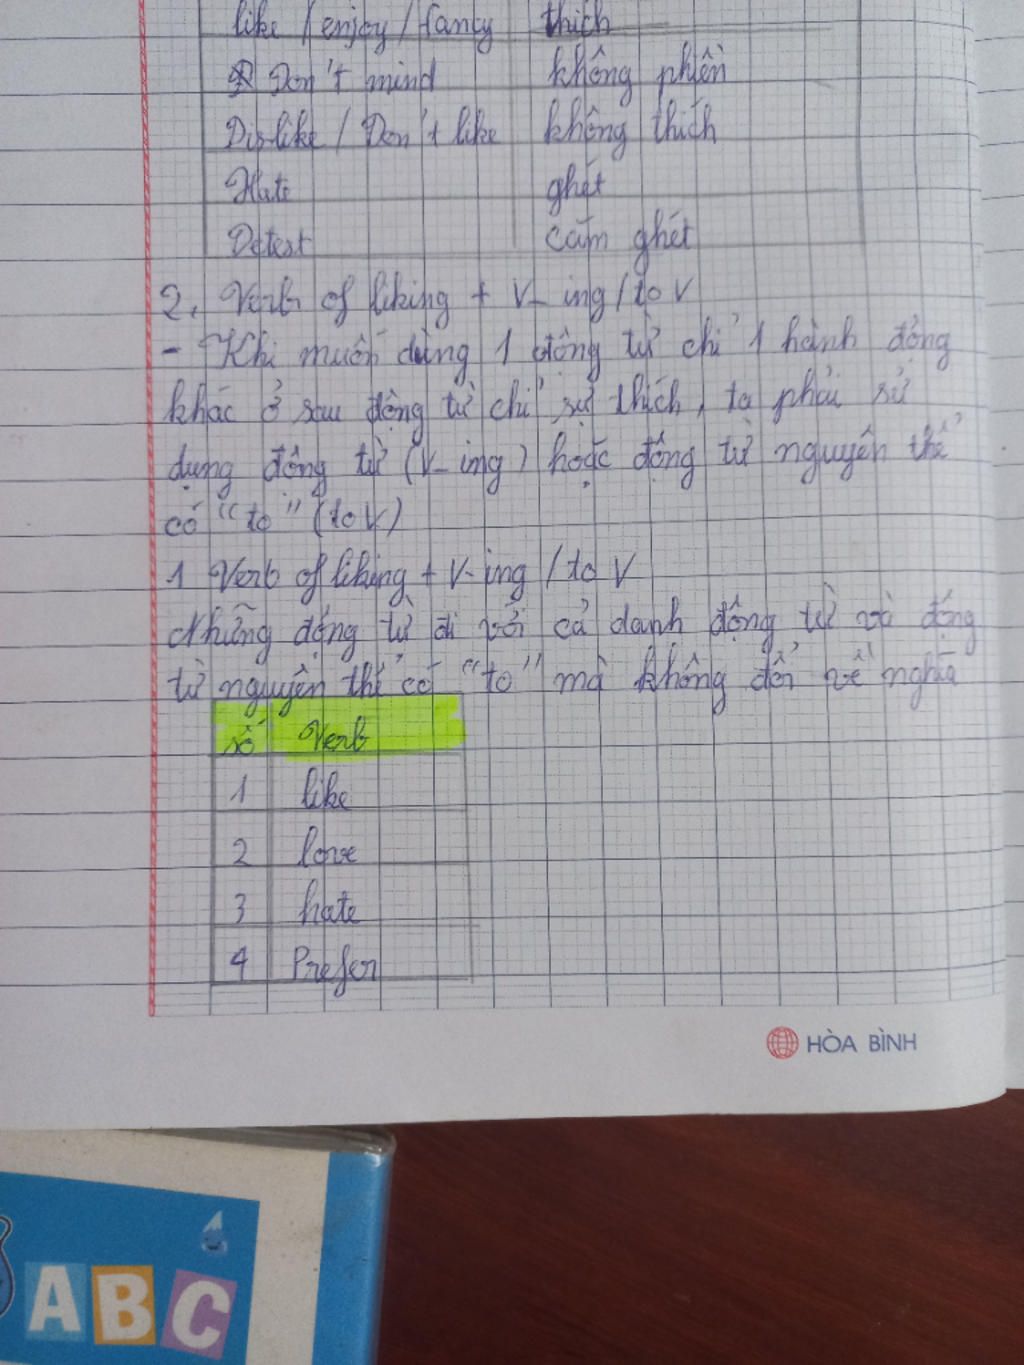 like / enjoy / fancy thích
Don't mind không phiền
Dislike / Don't like không thích
Hate ghét
Detest căm ghét
2, Verb of liking + V_ ing / to V
- Khi muốn dùng 1 động từ chỉ 1 hành động
khác ở sau động từ chỉ sự thích, ta phải sử
dụng động từ (V_ ing) hoặc động từ nguyên thể
có "to" (to V)
1 Verb of liking + V- ing / to V
Những động từ đi với cả danh động từ và động
từ nguyên thể có "to" mà không đổi về nghĩa
số Verb
1 like
2 love
3 hate
4 Prefer
HÒA BÌNH
ABC